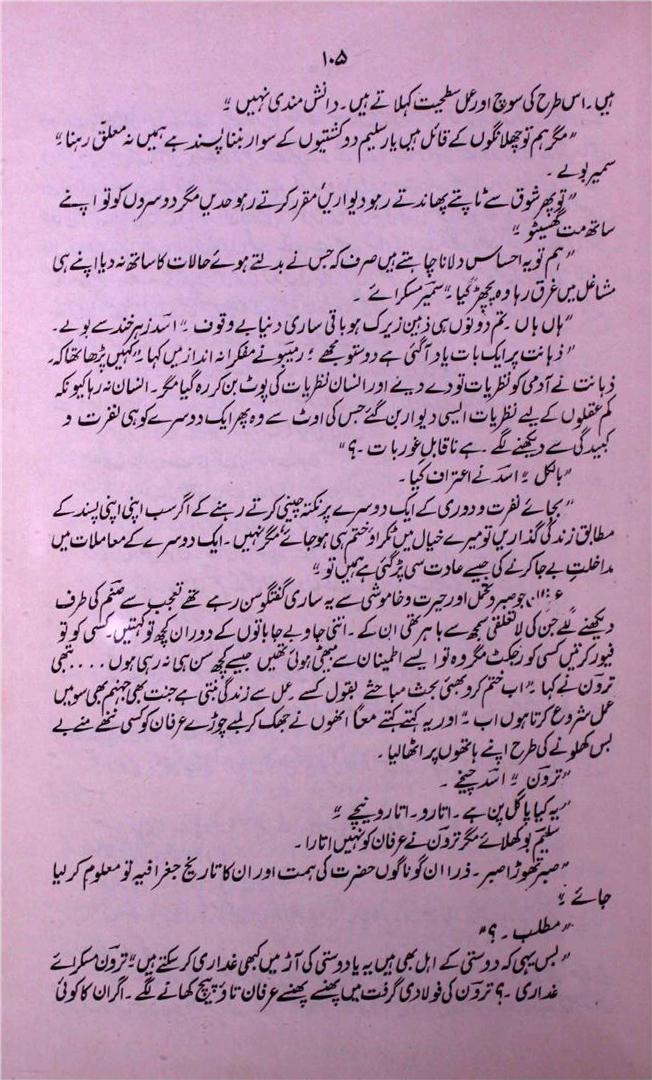 ۱۰۵
ہیں ۔ اس طرح کی سوچ اور عمل سطحیت کہلاتے ہیں ۔ دانش مندی نہیں ۔"
"مگر ہم تو چھلانگوں کے قائل ہیں یار سلیم دو کشتیوں کے سوار بننا پسند ہے ہمیں نہ معلق رہنا ۔"
سمیر بولے ۔
"تو پھر شوق سے ٹاپتے پھاندتے رہو دیواریں مقرر کرتے رہو حدیں مگر دوسروں کو تو اپنے
ساتھ مت گھسیٹو ۔"
"ہم تو یہ احساس دلانا چاہتے ہیں صرف کہ جس نے بدلتے ہوئے حالات کا ساتھ نہ دیا اپنے ہی
مشاغل میں غرق رہا وہ بچھڑ گیا ۔" سمیر مسکرائے ۔
"ہاں ہاں ۔ تم دونوں ہی ذہین زیرک ہو باقی ساری دنیا بے وقوف ۔" اسد زہر خند سے بولے ۔
"ذہانت پر ایک بات یاد آگئی ہے دوستو مجھے ؛ رمیبو نے مفکرانہ انداز میں کہا ۔" کہیں پڑھا تھا کہ
ذہانت نے آدمی کو نظریات تو دے دیے اور انسان نظریات کی پوٹ بن کر رہ گیا مگر ۔ انسان نہ رہا کیونکہ
کم عقلوں کے لیے نظریات ایسی دیوار بن گئے جس کی اوٹ سے وہ پھر ایک دوسرے کو ہی نفرت و
کبیدگی سے دیکھنے لگے ۔ ہے نا قابل غور بات ۔ ؟"
"بالکل ۔" اسد نے اعتراف کیا ۔
"بجائے نفرت و دوری کے ایک دوسرے پر نکتہ چینی کرتے رہنے کے اگر سب اپنی اپنی پسند کے
مطابق زندگی گذاریں تو میرے خیال میں ٹکراؤ ختم ہی ہو جائے مگر نہیں ۔ ایک دوسرے کے معاملات میں
مداخلتِ بے جا کرنے کی جیسے عادت سی پڑ گئی ہے ہمیں تو ۔"
جو صبر و تحمل اور حیرت و خاموشی سے یہ ساری گفتگو سن رہے تھے تعجب سے صنم کی طرف
دیکھنے لگے جن کی لاتعلقی سمجھ سے باہر تھی ان کے ۔ اتنی جا و بے جا باتوں کے دوران کچھ تو کہتیں ۔ کسی کو تو
فیور کرتیں کسی کو ریجکٹ مگر وہ تو ایسے اطمینان سے بیٹھی ہوئی تھیں جیسے کچھ سن ہی نہ رہی ہوں .... تبھی
ترون نے کہا ۔" اب ختم کرو بھئی بحث مباحثے بقول کسے ۔ عمل سے زندگی بنتی ہے جنت بھی جہنم بھی سو میں
عمل شروع کرتا ہوں اب ۔" اور یہ کہتے کہتے معاً انھوں نے جھک کر لمبے چوڑے عرفان کو کسی ننھے منے بے
بس کھلونے کی طرح اپنے ہاتھوں پر اٹھا لیا ۔
"ترون ۔" اسد چیخے ۔
"یہ کیا پاگل پن ہے ۔ اتارو ۔ اتارو نیچے ۔"
سلیم بوکھلائے مگر ترون نے عرفان کو نہیں اتارا ۔
"صبر تھوڑا صبر ۔ ذرا ان گوناگوں حضرت کی ہمت اور ان کا تاریخ جغرافیہ تو معلوم کر لیا
جائے ۔"
"مطلب ۔ ؟"
"بس یہی کہ دوستی کے اہل بھی ہیں یہ یا دوستی کی آڑ میں کبھی غداری کر سکتے ہیں ۔" ترون مسکرائے
غداری ۔ ؟ ترون کی فولادی گرفت میں پھنسے پھنسے عرفان تاؤ پیچ کھانے لگے ۔ اگر ان کا کوئی